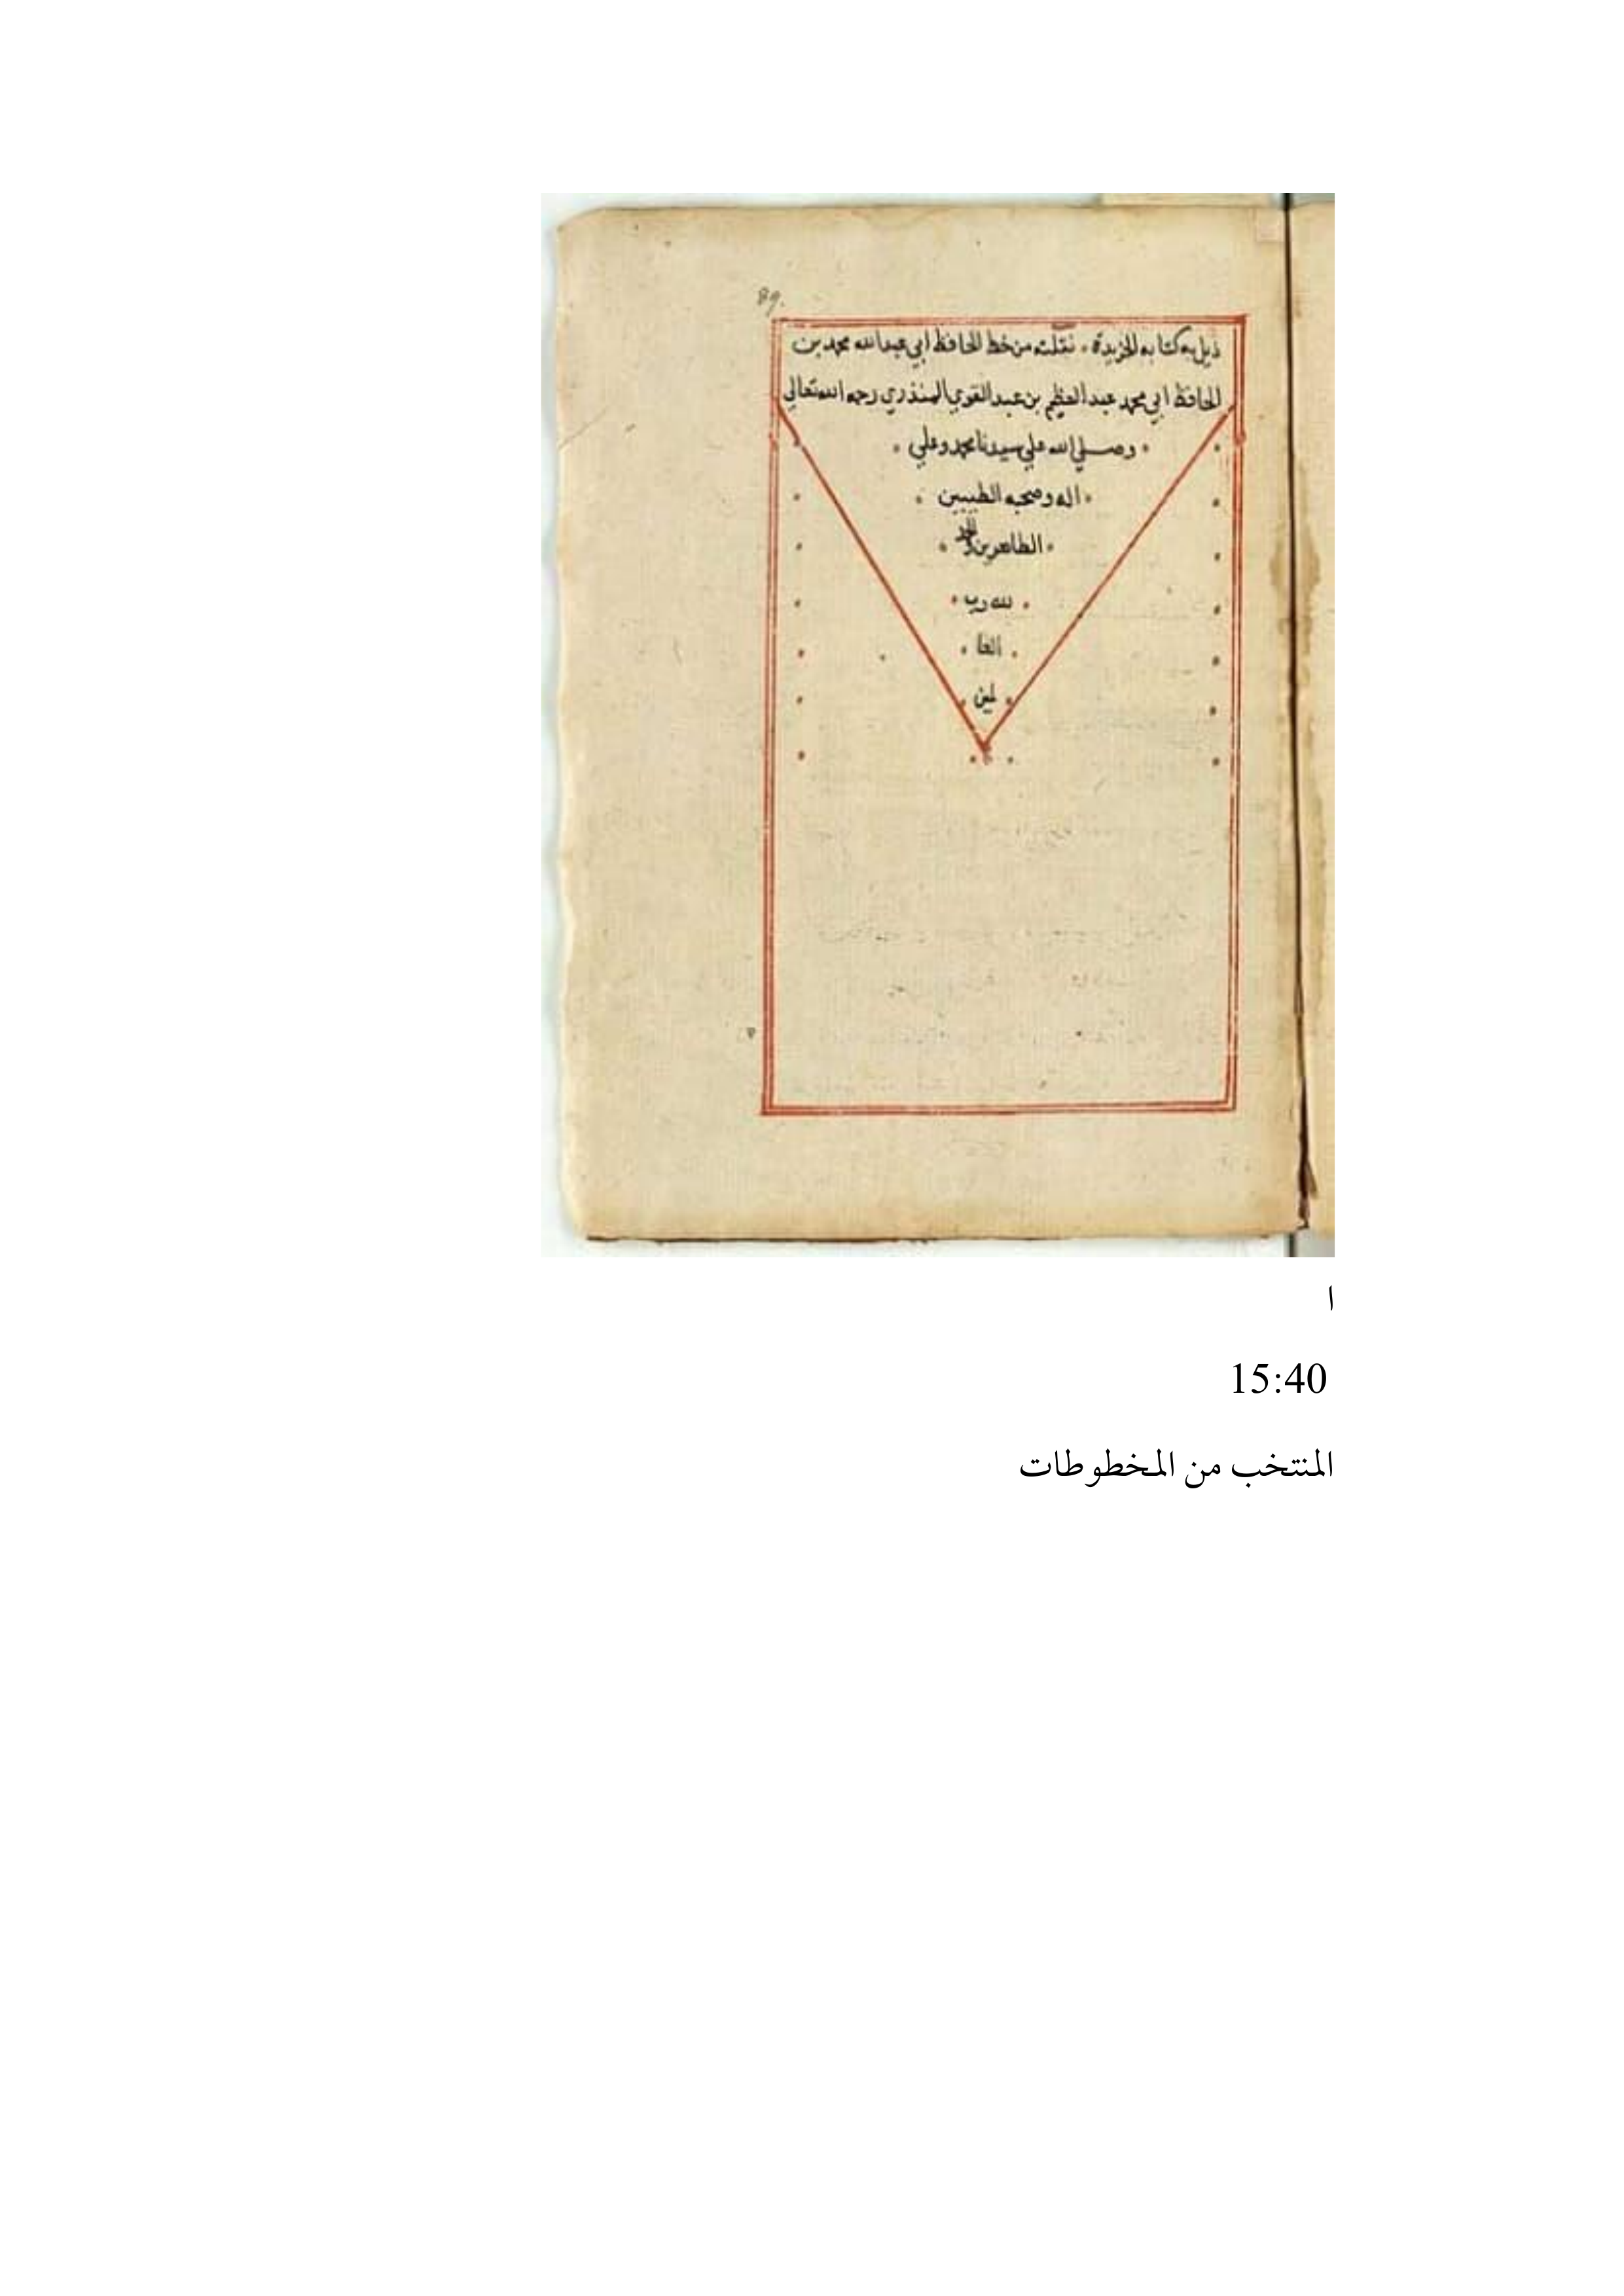 89.
ذيل به كتابه الخريدة ٠ نقلته من خط الحافظ ابي عبدالله محمد بن
الحافظ ابي محمد عبد العظيم بن عبد القوي المنذري رحمه الله تعالى
وصلي الله علي سيدنا محمد وعلي
اله وصحبه الطيبين
الطاهرين والحمد
لله رب
العا
لمين
ا
15:40
المنتخب من المخطوطات